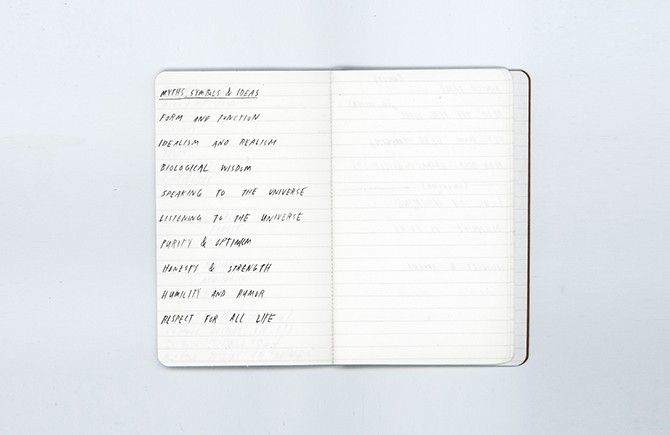 MYTHS, SYMBOLS & IDEAS
FORM AND FUNCTION
IDEALISM AND REALISM
BIOLOGICAL WISDOM
SPEAKING TO THE UNIVERSE
LISTENING TO THE UNIVERSE
PURITY & OPTIMISM
HONESTY & STRENGTH
HUMILITY AND HUMOR
RESPECT FOR ALL LIFE